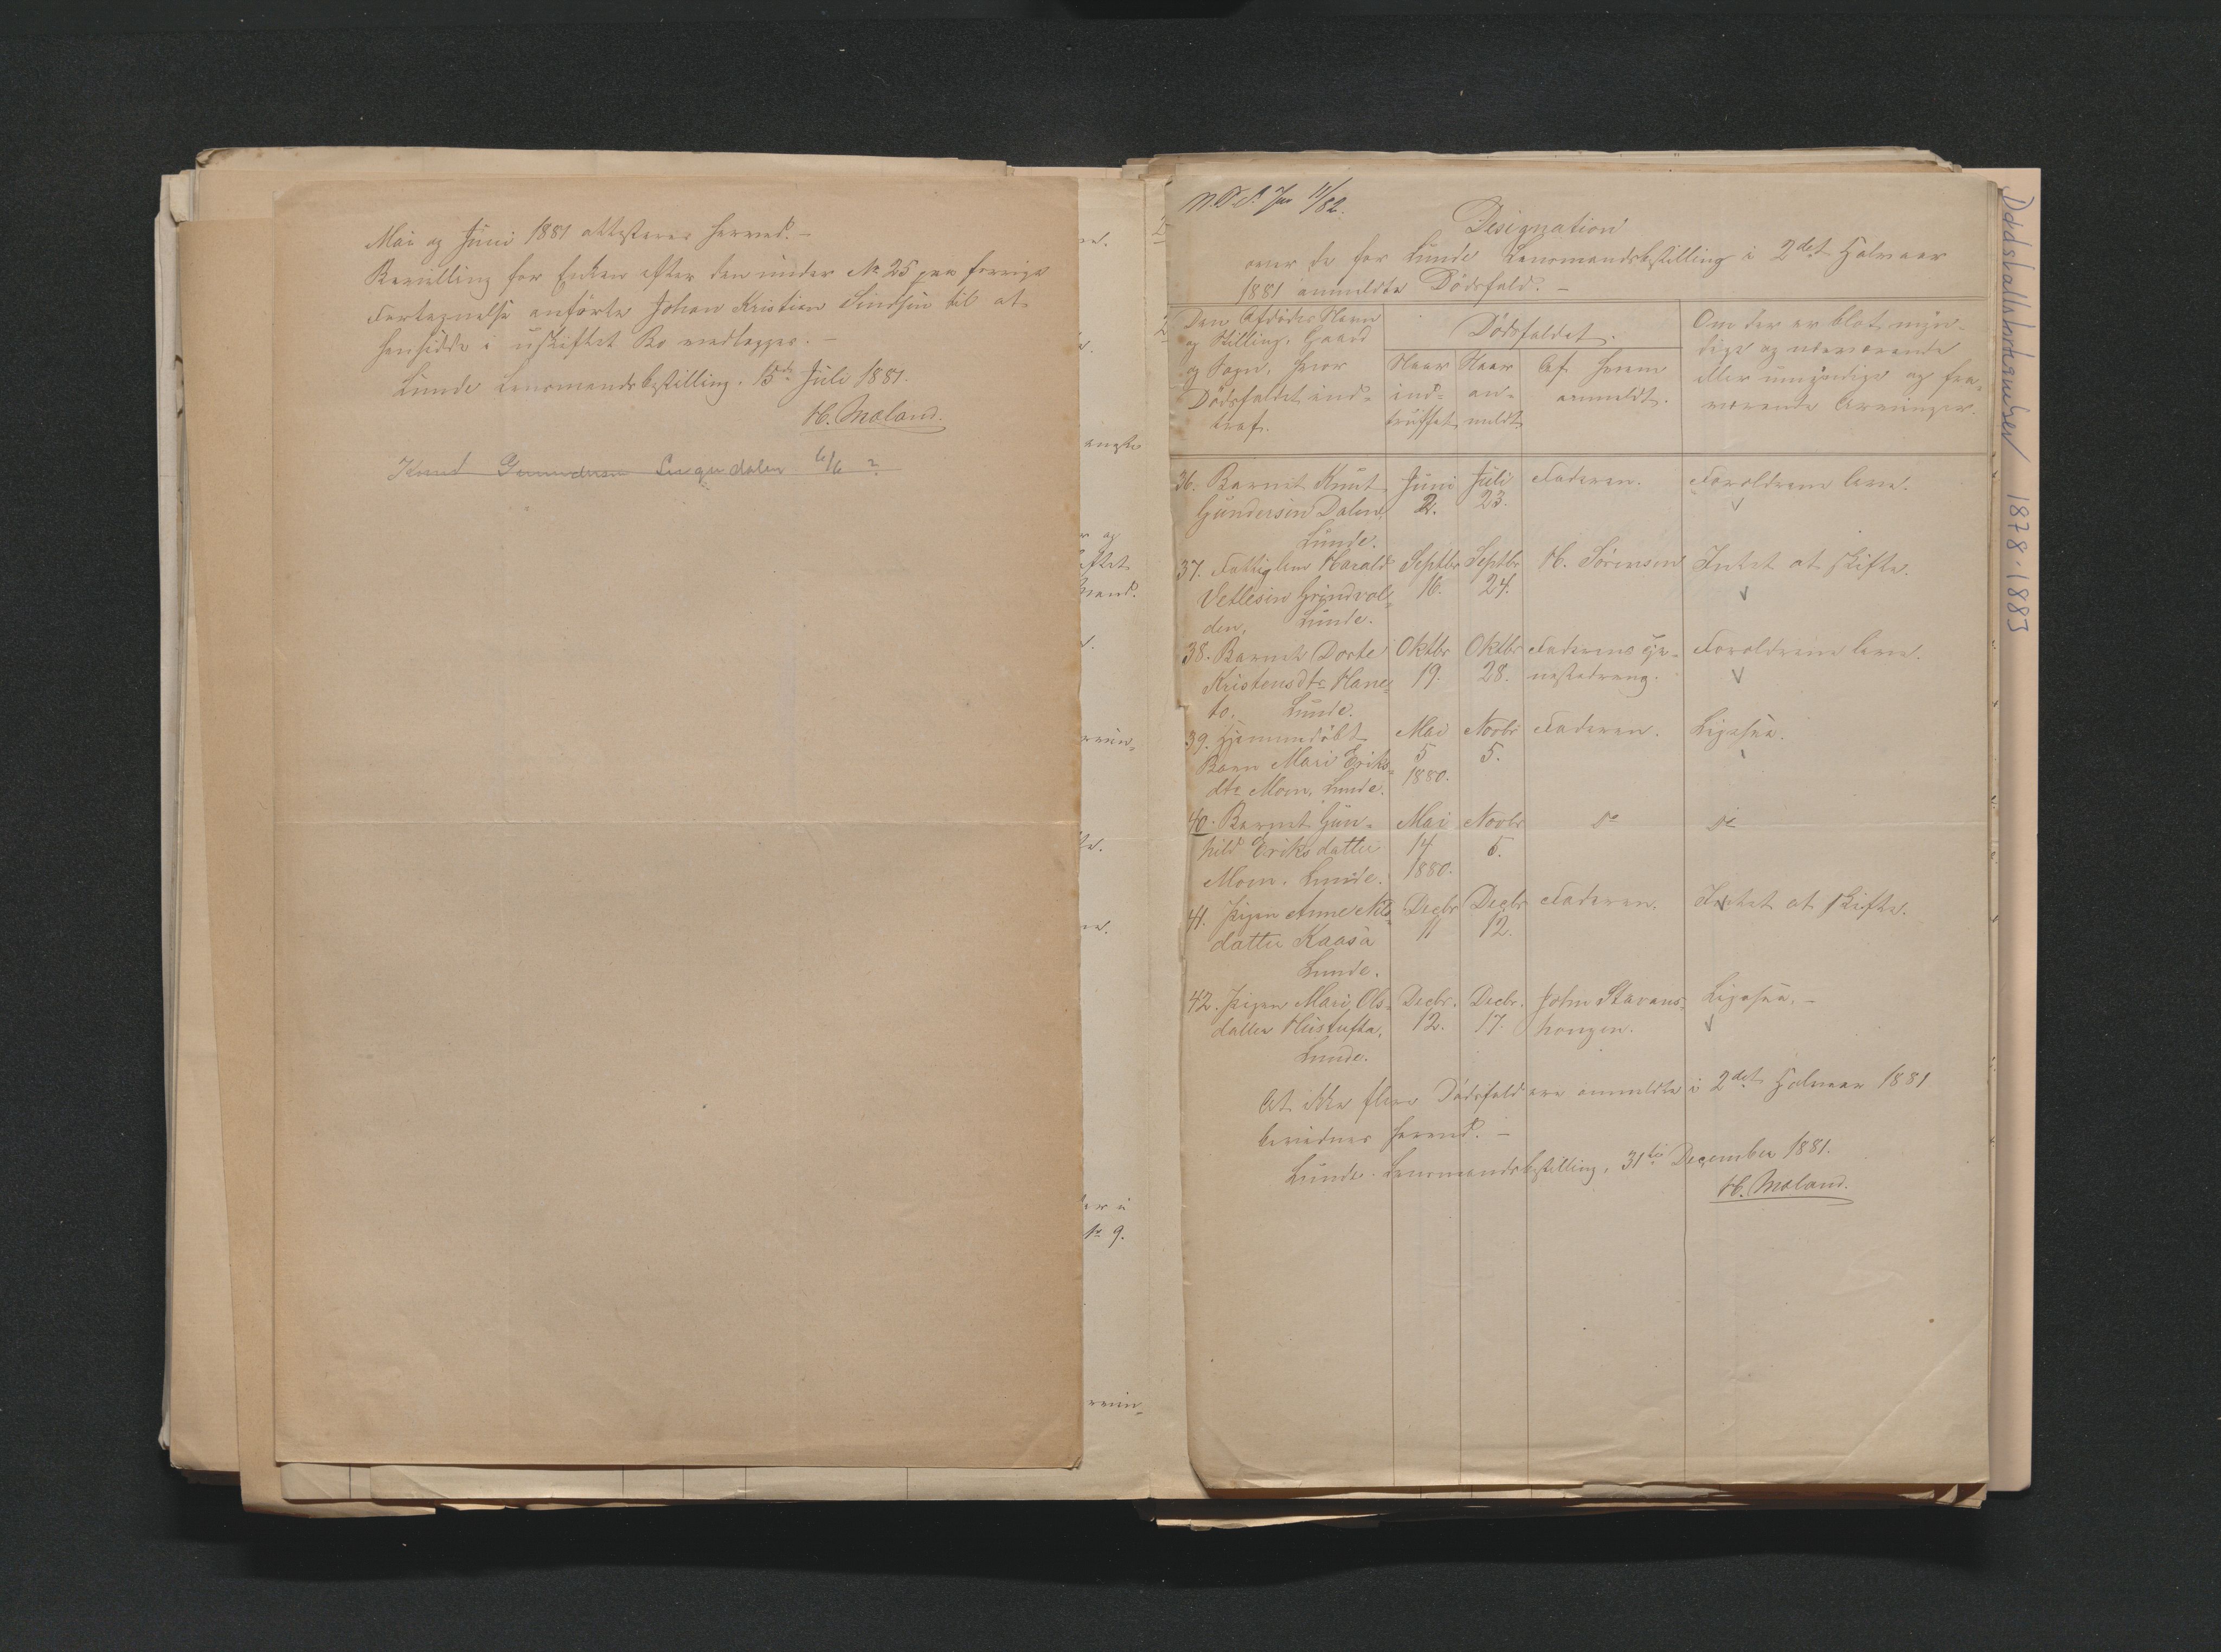 Mai og Juni 1881 attesteres herved. –
Bevilling for Enken efter den under No 25 paa forrige
Fortegnelse anførte Johan Kristian Simonsen til at
hensidde i uskiftet Bo vedlægges. –
Lunde Lensmandsbestilling, 15de Juli 1881.
H. Moland.
Knud Gundersen dalen 6/6 ?
Jan 11/82.
Designation
over de for Lunde Lensmandsbestilling i 2det Halvaar
1881 anmeldte Dødsfald. –
Den Afdødes Navn
og Stilling, Gaard
og Sogn, hvor
Dødsfaldet ind-
traf.
Dødsfaldet.
Naar
ind-
truffet
Naar
an-
meldt
Af hvem
anmeldt.
Om der er blot myn-
dige og nærværende
eller umyndige og fra-
værende Arvinger.
36. Barnet Knut
Gundersen Dalen,
Lunde.
Juni
2.
Juli
23.
Faderen.
Forældrene leve.
37. Fattiglem Harald
Vetlesen Grindvol-
den, Lunde.
Septbr
16.
Septbr
24.
H. Sørensen
Intet at skifte.
38. Barnet Dorte
Kristensdtr Hane-
to. Lunde.
Oktbr
19.
Oktbr
28.
Faderens Tje-
nestedreng.
Forældrene leve.
39. Hjemmedøbt
Barn Mari Eriks-
dtr Moen, Lunde.
Mai
5
1880.
Novbr
5.
Faderen.
Ligesaa.
40. Barnet Gun-
hild Eriksdatter
Moen. Lunde.
Mai
14
1880.
Novbr
5.
do
do
41. Pigen Anne Nils-
datter Kaasa
Lunde.
Decbr
11
Decbr
12.
Faderen.
Intet at skifte.
42. Pigen Mari Ols-
datter Hustufta,
Lunde.
Decbr.
12.
Decbr.
17.
John Stavans-
haugen.
Ligesaa. –
At ikke flere Dødsfald ere anmeldte i 2det Halvaar 1881
bevidnes herved. –
Lunde Lensmandsbestilling, 31te December 1881.
H. Moland.
Dødsfallsfortegnelser 1878-1883